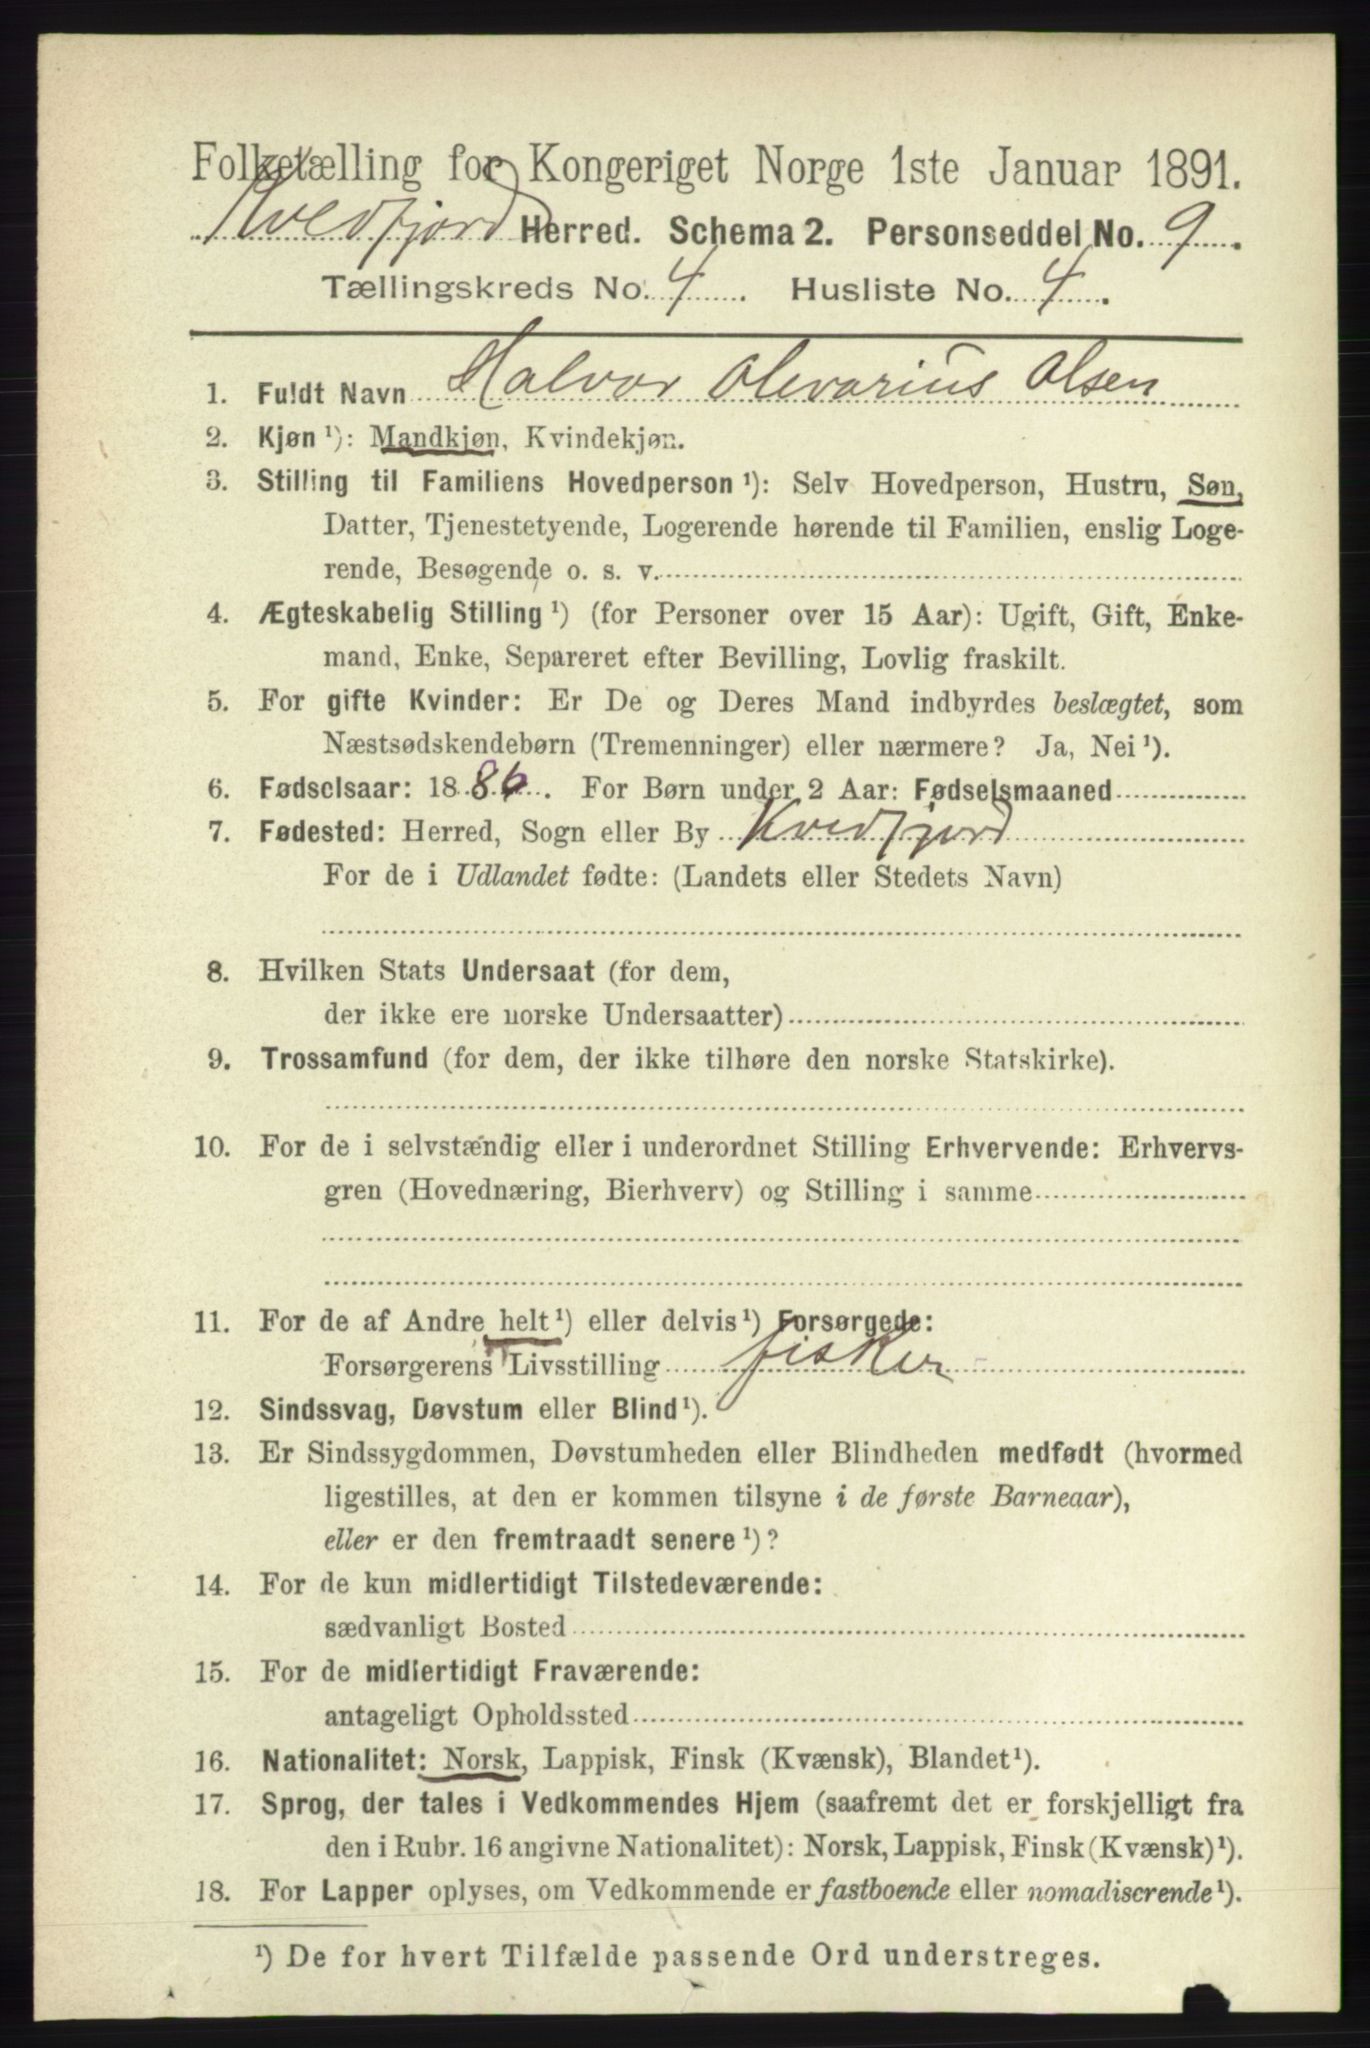 Folketælling for Kongeriget Norge 1ste Januar 1891.
Kvedfjord Herred. Schema 2. Personseddel No. 9.
Tællingskreds No. 4. Husliste No. 4.
1. Fuldt Navn Halvor Olevarius Olsen
2. Kjøn ¹): Mandkjøn, Kvindekjøn.
3. Stilling til Familiens Hovedperson ¹): Selv Hovedperson, Hustru, Søn,
Datter, Tjenestetyende, Logerende hørende til Familien, enslig Loge-
rende, Besøgende o. s. v.
4. Ægteskabelig Stilling ¹) (for Personer over 15 Aar): Ugift, Gift, Enke-
mand, Enke, Separeret efter Bevilling, Lovlig fraskilt.
5. For gifte Kvinder: Er De og Deres Mand indbyrdes beslægtet, som
Næstsødskendebørn (Tremenninger) eller nærmere? Ja, Nei ¹).
6. Fødselsaar: 1886. For Børn under 2 Aar: Fødselsmaaned
7. Fødested: Herred, Sogn eller By Kvedfjord
For de i Udlandet fødte: (Landets eller Stedets Navn)
8. Hvilken Stats Undersaat (for dem,
der ikke ere norske Undersaatter)
9. Trossamfund (for dem, der ikke tilhøre den norske Statskirke).
10. For de i selvstændig eller i underordnet Stilling Erhvervende: Erhvervs-
gren (Hovednæring, Bierhverv) og Stilling i samme
11. For de af Andre helt ¹) eller delvis ¹) Forsørgede:
Forsørgerens Livsstilling fisker
12. Sindssvag, Døvstum eller Blind ¹).
13. Er Sindssygdommen, Døvstumheden eller Blindheden medfødt (hvormed
ligestilles, at den er kommen tilsyne i de første Barneaar),
eller er den fremtraadt senere ¹)?
14. For de kun midlertidigt Tilstedeværende:
sædvanligt Bosted
15. For de midlertidigt Fraværende:
antageligt Opholdssted
16. Nationalitet: Norsk, Lappisk, Finsk (Kvænsk), Blandet ¹).
17. Sprog, der tales i Vedkommendes Hjem (saafremt det er forskjelligt fra
den i Rubr. 16 angivne Nationalitet): Norsk, Lappisk, Finsk (Kvænsk) ¹).
18. For Lapper oplyses, om Vedkommende er fastboende eller nomadiserende ¹).
¹) De for hvert Tilfælde passende Ord understreges.